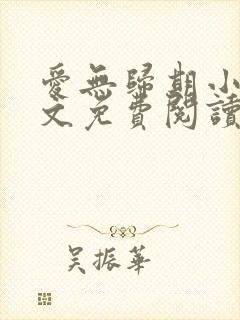 愛無歸期小
文免費閱讀
吳振華